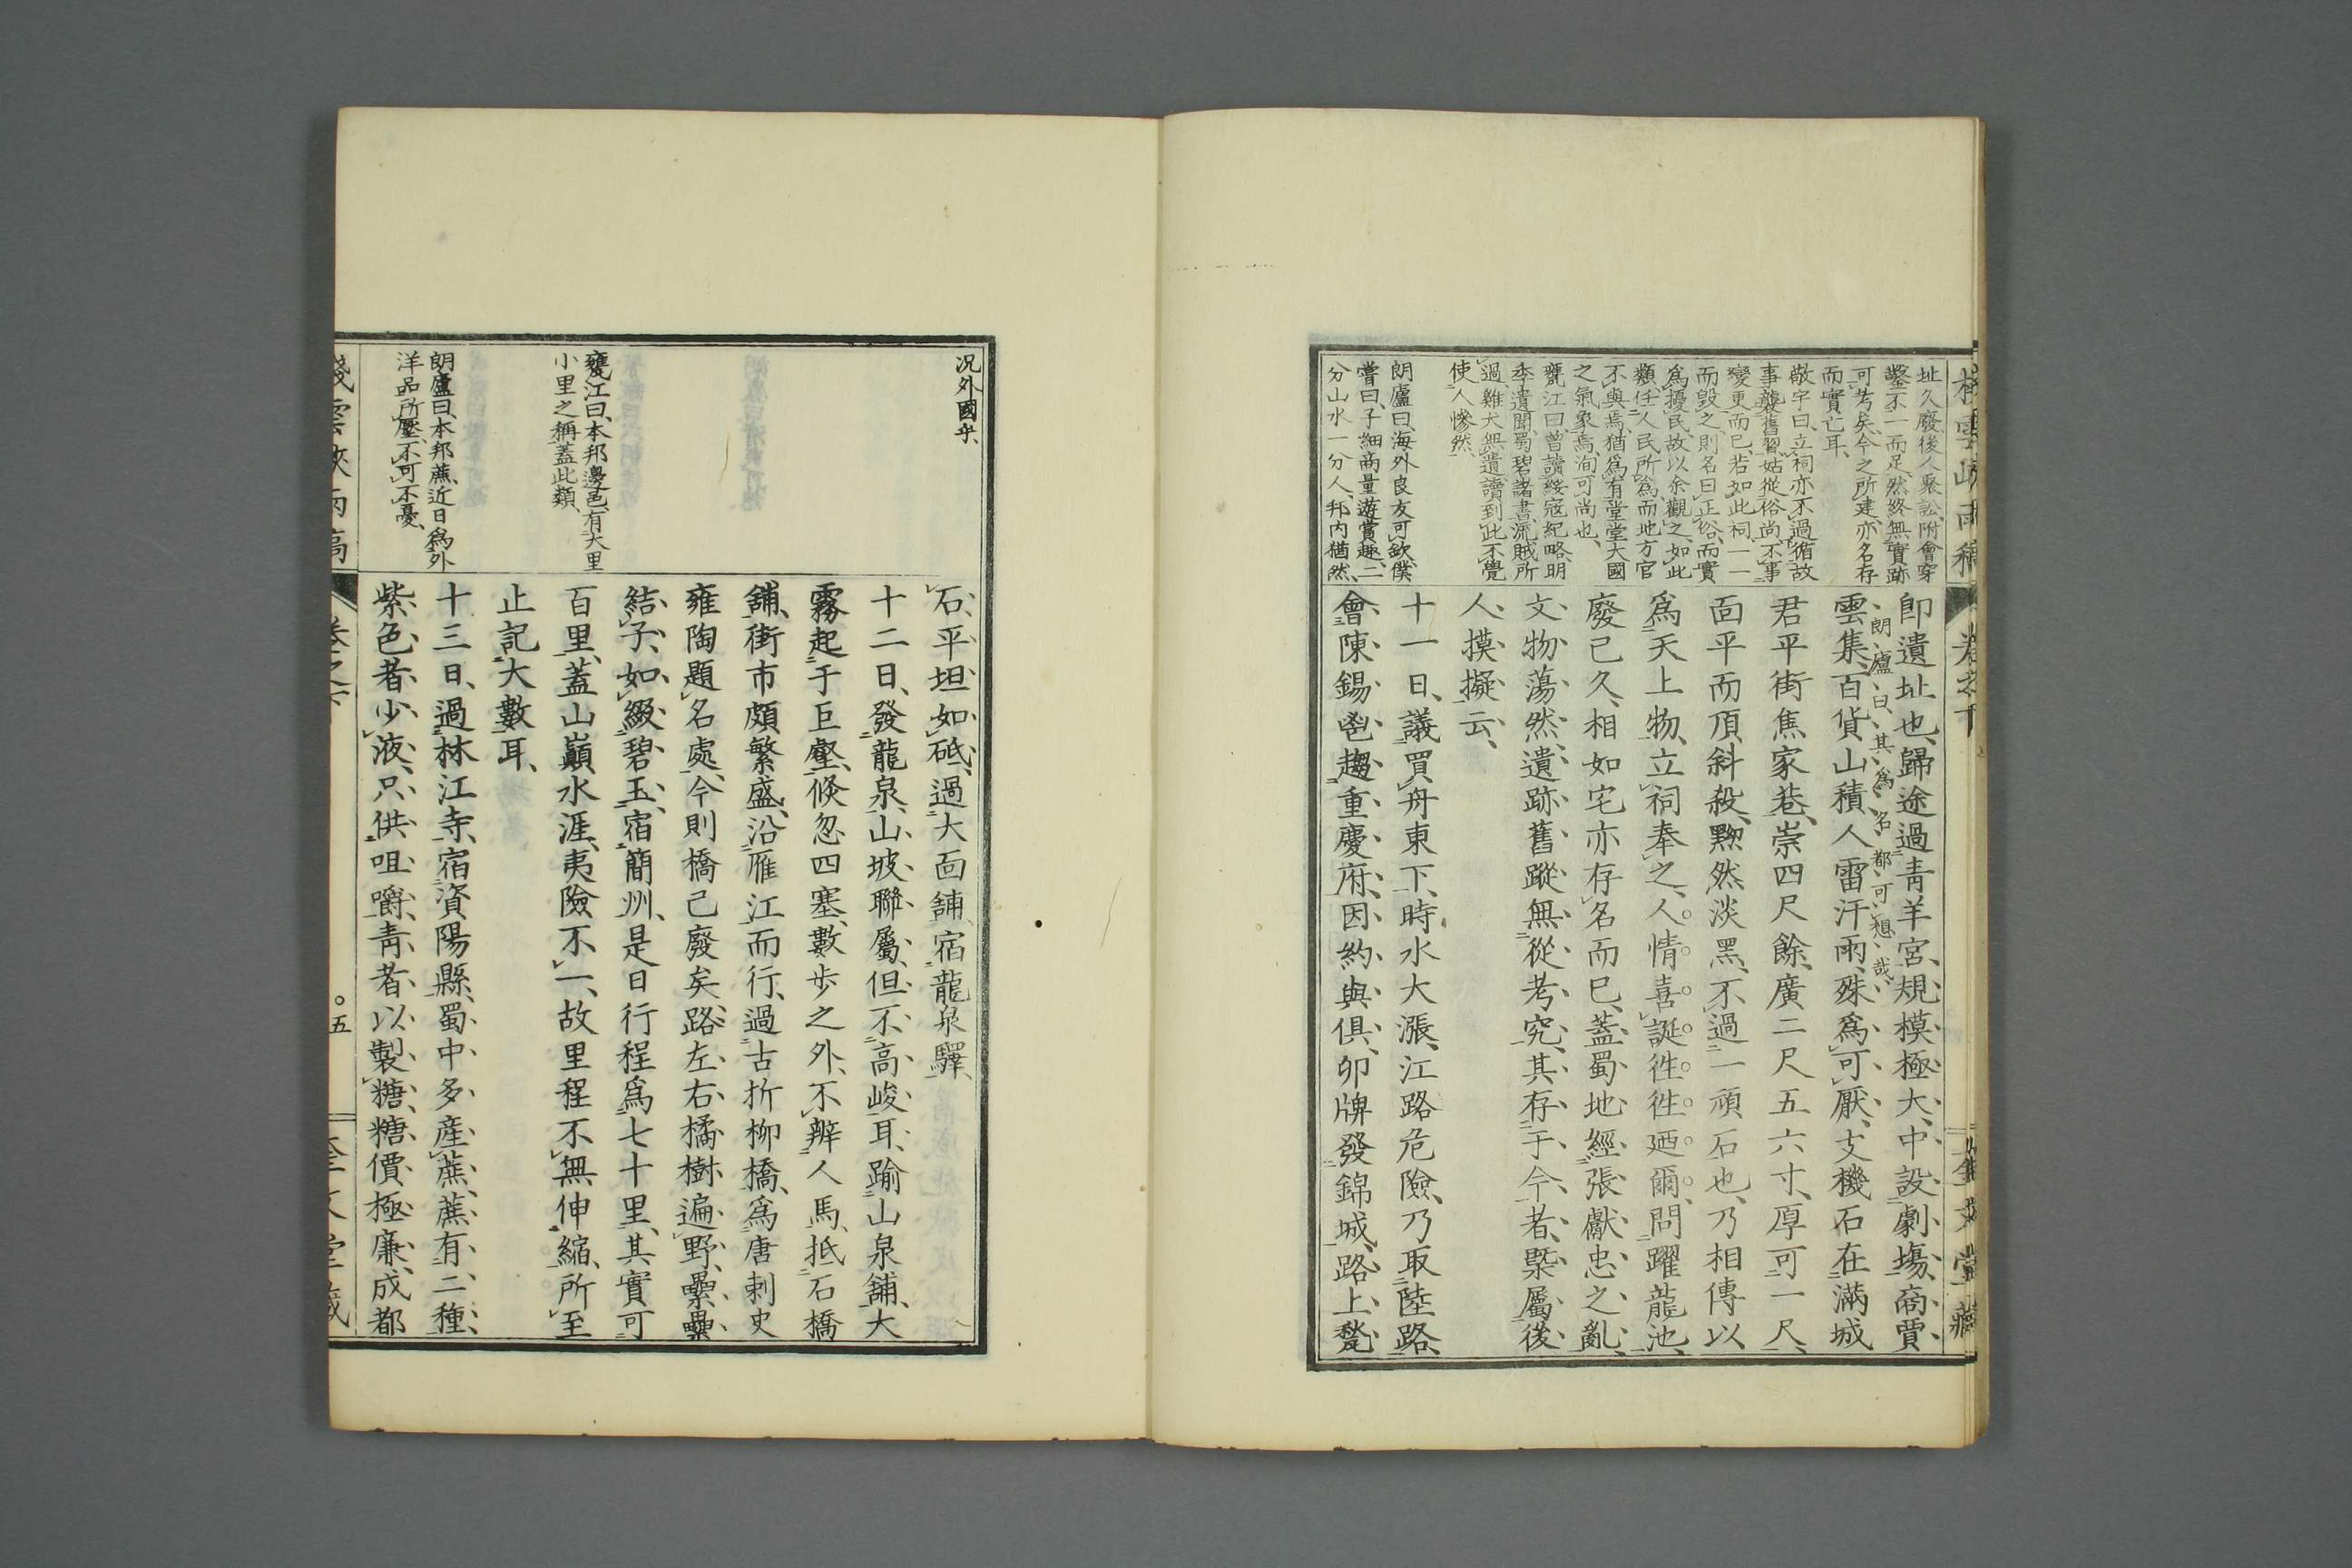 址久廢後人聚訟附會穿
鑿不一而足然終無實跡
可考矣今之所建亦名存
而實亡耳
敬宇曰立祠亦不過循故
事襲舊習姑從俗尚不事
變更而已若如此祠一一
而毀之則名曰正俗而實
爲擾民故以余觀之如此
類任人民所爲而地方官
不與焉猶爲有堂堂大國
之氣象焉洵可尚也
甕江曰曾讀綏寇紀略明
季遺聞蜀碧諸書流賊所
過雞犬無遺讀到此不覺
使人慘然
朗廬曰海外良友可欽僕
嘗曰子細商量遊賞趣二
分山水一分人邦内猶然
卽遺址也、歸途過靑羊宮、規模極大、中設劇塲、商賈
雲集、百貨山積、人雷汗雨、殊爲可厭、支機石在滿城
朗廬曰其爲名都可想哉
君平街焦家巷、崇四尺餘、廣二尺五六寸、厚可一尺、
面平而頂斜殺、黝然淡黑、不過一頑石也、乃相傳以
爲天上物、立祠奉之、人情喜誕徃徃廼爾、問躍龍池、
廢已久、相如宅亦存名而已、蓋蜀地經張獻忠之亂、
文物蕩然、遺跡舊蹤無從考究、其存于今者、槩屬後
人摸擬云、
十一日、議買舟東下、時水大漲、江路危險、乃取陸路、
會陳錫鬯趨重慶府、因約與俱、卯牌發錦城、路上甃
棧雲峽雨稿
卷之下
奎文堂藏
况外國乎
甕江曰、本邦邊邑、有大里
小里之稱、蓋此類、
朗廬曰、本邦蔗、近日爲外
洋品所壓、不可不憂、
石、平坦如砥、過大面舖、宿龍泉驛、
十二日、發龍泉、山坡聯屬、但不高峻耳、踰山泉舖、大
霧起于巨壑、倐忽四塞、數步之外、不辨人馬、抵石橋
舖、街市頗繁盛、沿雁江而行、過古折柳橋、爲唐刺史
雍陶題名處、今則橋已廢矣、路左右橘樹遍野、纍纍
結子、如綴碧玉、宿簡州、是日行程爲七十里、其實可
百里、蓋山巓水涯、夷險不一、故里程不無伸縮、所至
止記大數耳、
十三日、過林江寺、宿資陽縣、蜀中多產蔗、蔗有二種、
紫色者少液、只供咀嚼、靑者以製糖、糖價極廉、成都
棧雲峽雨稿
卷之下
五
奎文堂藏